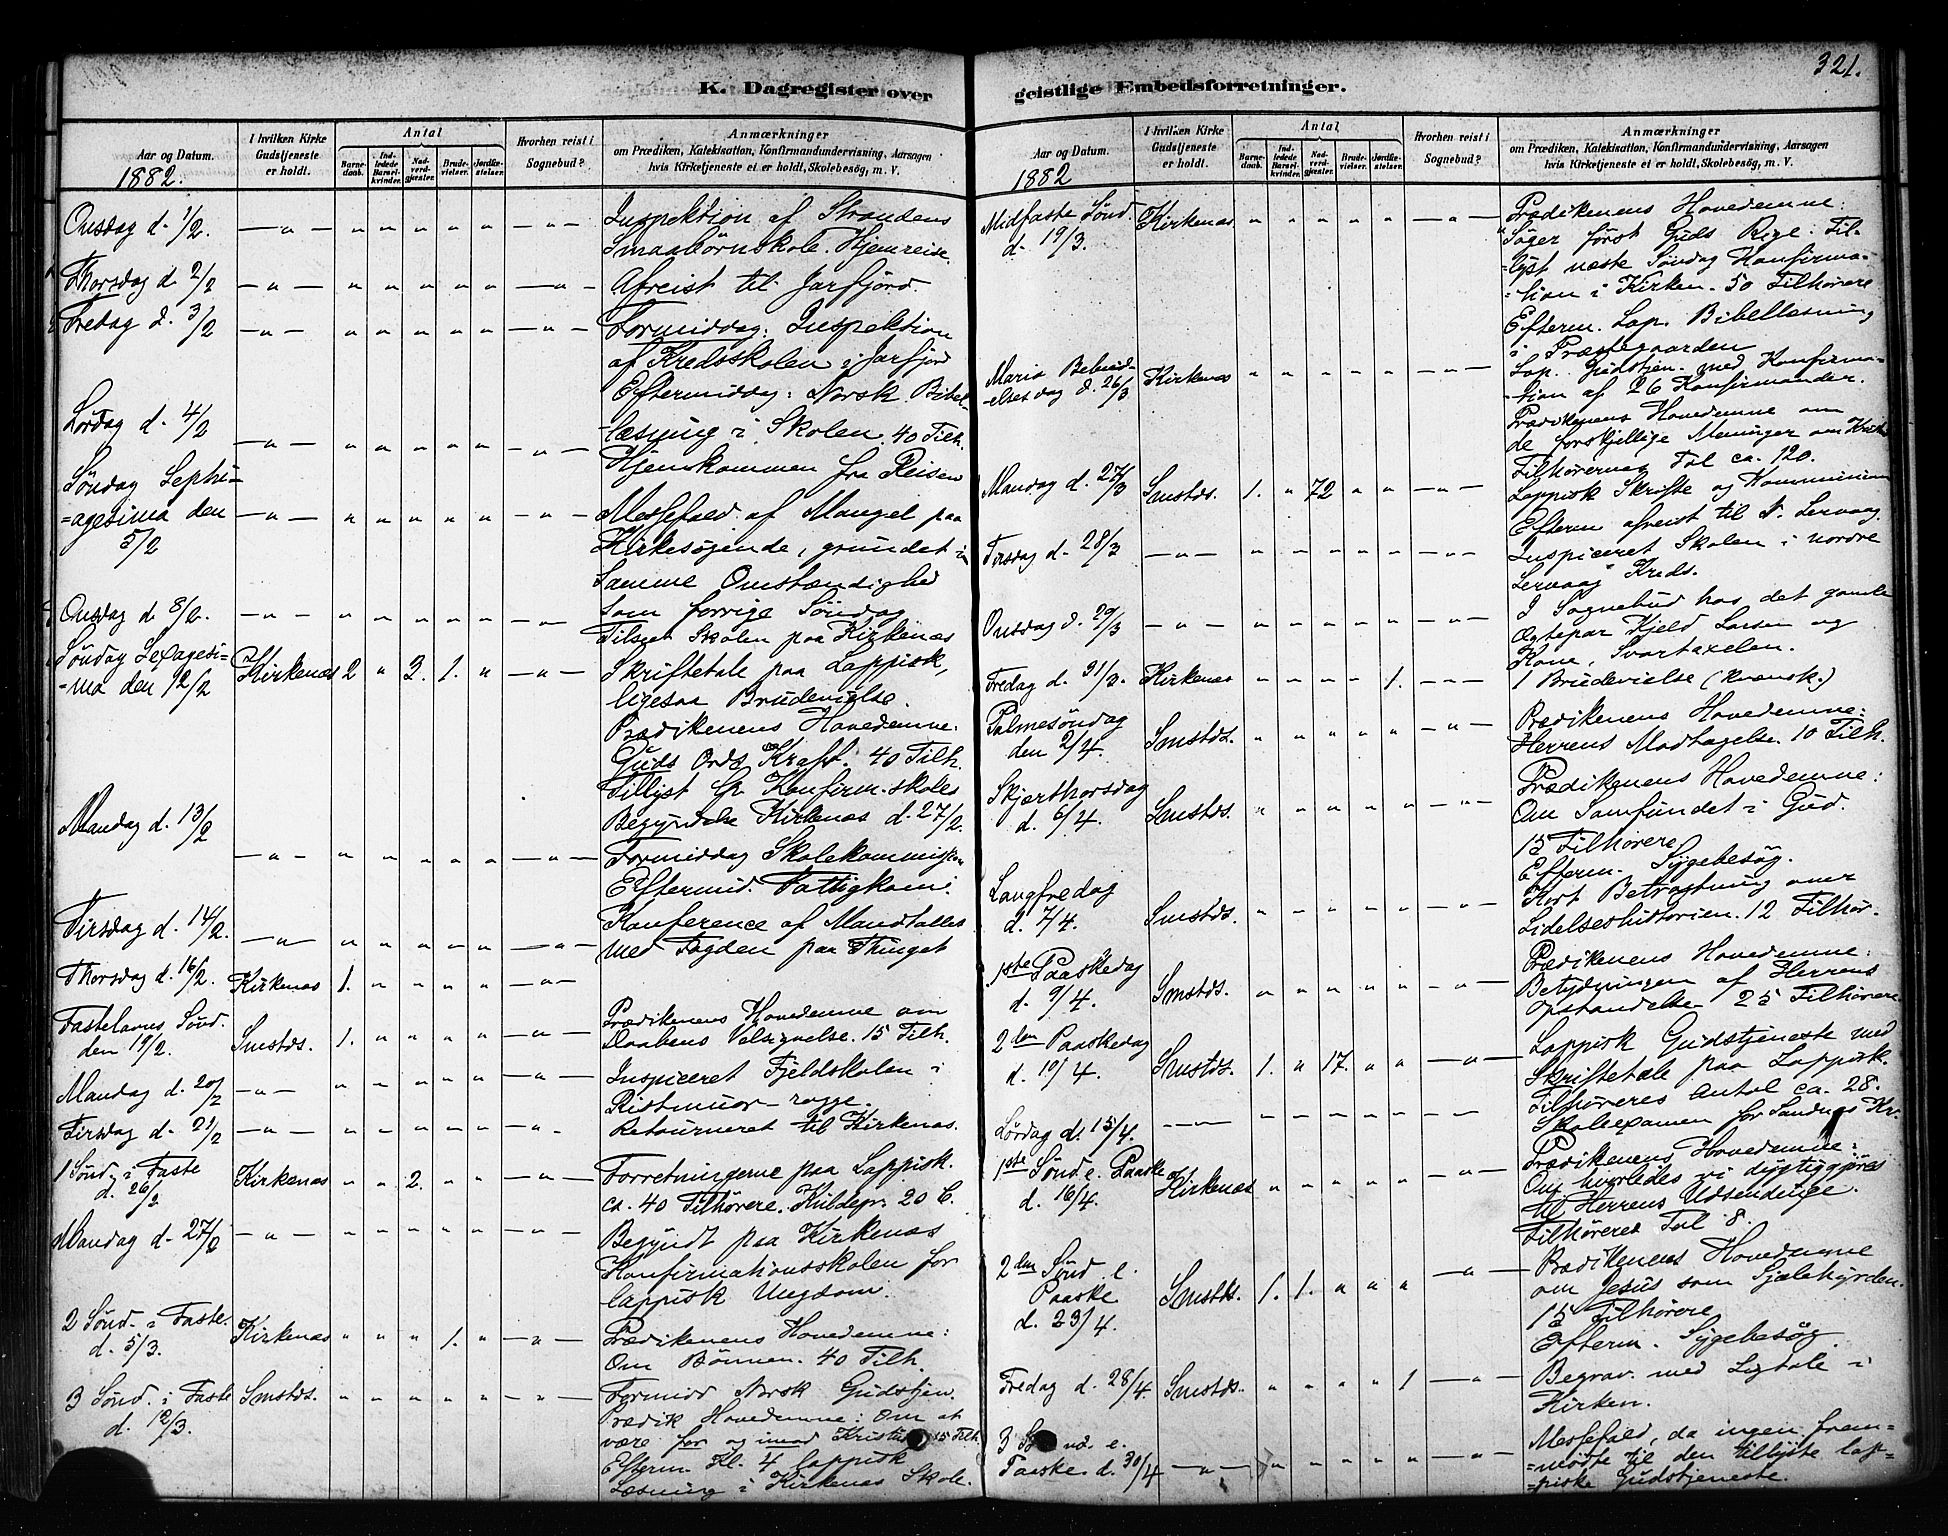 321.
K. Dagregister over
geistlige Embedsforretninger.
Aar og Datum.
1882.
I hvilken Kirke
Gudstjeneste
er holdt.
Antal
Barne-
daab.
Ind-
ledede
Barsel-
kvinder.
Nad-
verd-
gjester.
Brude-
vielser.
Jordfæ-
stelser.
Hvorhen reist i
Sognebud?
Anmærkninger
om Prædiken, Katekisation, Konfirmandundervisning, Aarsagen
hvis Kirketjeneste ei er holdt, Skolebesøg, m. V.
Onsdag d. 1/2. — " — " " " " " — " — Inspektion af Strandens
Smaabørnskole. Hjemreise.
Thorsdag d. 2/2 — " — " " " " " — " — Afreist til Jarfjord
Fredag d. 3/2 — " — " " " " " — " — Formiddag: Inspektion
af Kredsskolen i Jarfjord
Eftermiddag: Norsk Bibel-
læsning i Skolen. 40 Tilh.
Lørdag d. 4/2 — " — " " " " " — " — Hjemkommen fra Reisen
Søndag Septu-
=agesima den
5/2 — " — " " " " " — " — Messefald af Mangel paa
Kirkesøgende, grundet i
Samme Omstændighed
som forrige Søndag
Onsdag d. 8/2. — " — " " " " " — " — Tilseet Skolen paa Kirkenæs
Søndag Sexagesi-
=ma den 12/2 Kirkenæs 2 " 3. 1. " — " — Skriftetale paa Lappisk,
ligesaa Brudevielse.
Prædikenens Hovedemne:
Guds Ords Kraft. 40 Tilh.
Tillyst Konfirm.skoles
Begyndelse Kirkenæs d. 27/2.
Mandag d. 13/2 — " — " " " " " — " — Formiddag Skolekommission
Eftermid. Fattigkom:
Tirsdag d. 14/2. — " — " " " " " — " — Konference af Mandtallet
med Fogden paa Thinget
Thorsdag d. 16/2. Kirkenæs 1. " " " " — " —
Fastelavns Sønd.
den 19/2. Smstds. 1. " " " " — " — Prædikenens Hovedemne om
Daabens Velsignelse. 15 Tilh.
Mandag d. 20/2 — " — " " " " " — " — Inspiceret Fjeldskolen i
Tirsdag d. 21/2 — " — " " " " " — " — Retourneret til Kirkenæs.
1 Sønd. i Faste
d. 26/2 Kirkenæs " " 2. " " — " — Forretningerne paa Lappisk.
ca. 40 Tilhørere.
Mandag d. 27/2 — " — " " " " " — " — Begyndt paa Kirkenæs
Konfirmationsskolen for
lappisk Ungdom.
2 Sønd. i Faste.
d. 5/3. Kirkenæs " " " 1. " — " — Prædikenens Hovedemne:
Om Bønnen. 40 Tilh.
3 Sønd. i Faste
d. 12/3. Smstds. " " " " " — " — Formid Norsk Gudstjen
Prædik Hovedemne: Om at
være for og imod Kristus 15 Tilh.
Efterm Kl. 4 lappisk
Læsning i Kirkenæs Skole.
Aar og Datum.
1882
I hvilken Kirke
Gudstjeneste
er holdt.
Antal
Barne-
daab.
Ind-
ledede
Barsel-
kvinder.
Nad-
verd-
gjester.
Brude-
vielser.
Jordfæ-
stelser.
Hvorhen reist i
Sognebud?
Anmærkninger
om Prædiken, Katekisation, Konfirmandundervisning, Aarsagen
hvis Kirketjeneste ei er holdt, Skolebesøg, m. V.
Midfaste Sønd.
d. 19/3. Kirkenæs " " " " " — " — Prædikenens Hovedemne:
Søger først Guds Rige. Til-
lyst næste Søndag Konfirma-
=tion i Kirken. 50 Tilhørere
Efterm. Lap. Bibellæsning
i Præstegaarden
Maria Bebud-
=elsesdag d. 26/3 Kirkenæs " " " " " — " — Lap. Gudstjen. med Konfirma-
tion af 26 Konfirmander.
Prædikenens Hovedemne om
de forskjellige Meninger om Kristus
Tilhørernes Tal ca. 120.
Mandag d. 27/3 Smstds. 1. " 72 " " — " — Lappisk Skrifte og Kommunion
Efterm afreist til N. Lervaag.
Tirsdag d. 28/3 — " — " " " " " — " — Inspiceret Skolen i nordre
Lervaag Kreds.
Onsdag d. 29/3 — " — " " " " " — " — I Sognebud hos det gamle
Ægtepar Kjeld Larsen og
Kone, Svartaxelen.
Fredag d. 31/3. Kirkenæs " " " " 1. — " — 1 Brudevielse (kvænsk.)
Palmesøndag
den 2/4. Smstds. " " " " " — " — Prædikenens Hovedemne:
Herrens Modtagelse. 10 Tilh.
Skjærthorsdag
d. 6/4. Smstds. " " " " " — " — Prædikenens Hovedemne:
Om Samfundet i Gud.
15 Tilhørere
Efterm. Sygebesøg.
Langfredag
d. 7/4. Smstds. " " " " " — " — Kort Betragtning over
Lidelseshistorien. 12 Tilhør.
1ste Paaskedag
d. 9/4. Smstds. " " " " " — " — Prædikenens Hovedemne:
Betydningen af Herrens
Opstandelse 25 Tilhørere
2den Paaskedag
d. 10/4. Smstds. 1. " 17. " " — " — Lappisk Gudstjeneste med
Skriftetale paa Lappisk.
Tilhøreres Antal ca. 28.
Lørdag d. 15/4. — " — " " " " " — " — Skoleexamen for Sandnes Kr.
1ste Sønd e. Paaske
d. 16/4. Kirkenæs " " " " " — " — Prædikenens Hovedemne:
Om hvorledes vi dygtiggjøres
til Herrens Udsendelse.
Tilhøreres Tal 8.
2den Sønd e.
Paaske
d. 23/4. Smstds. 1. 1. " " " — " — Prædikenens Hovedemne
om Jesus som Sjælehyrden.
15 Tilhørere
Efterm. Sygebesøg
Fredag d. 28/4. Smstds. " " " " 1 — " — Begrav. med Ligtale i
Kirken.
3 Sønd. e.
Paaske d. 30/4 — " — " " " " " — Messefald, da ingen frem-
=mødte til den tillyste lap-
=piske Gudstjeneste.